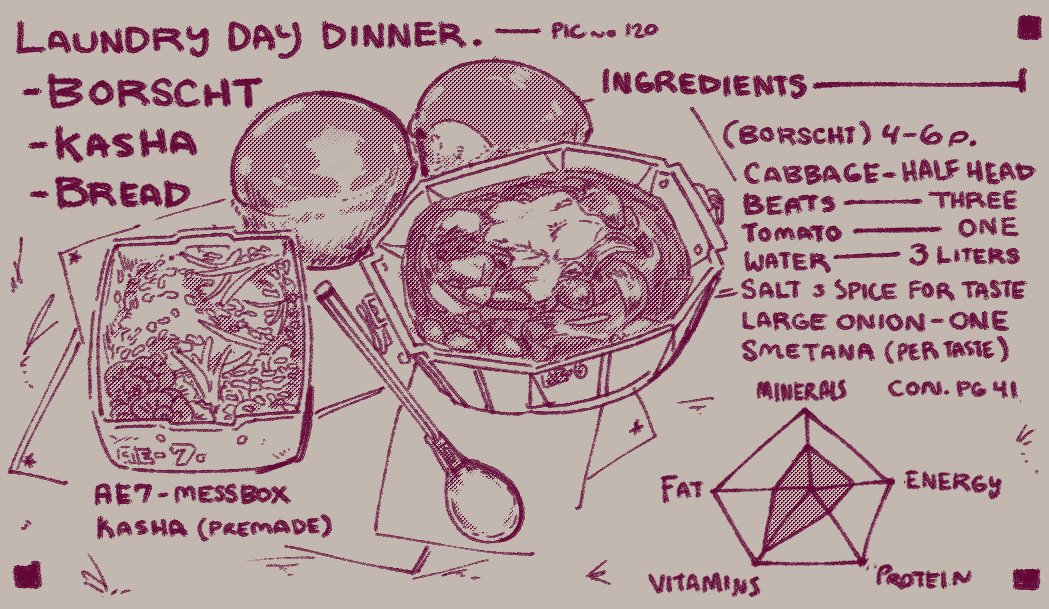 LAUNDRY DAY DINNER. — PIC no 120
- BORSCHT
- KASHA
- BREAD
INGREDIENTS
(BORSCHT) 4-6 p.
CABBAGE - HALF HEAD
BEATS — THREE
TOMATO — ONE
WATER — 3 LITERS
SALT & SPICE FOR TASTE
LARGE ONION - ONE
SMETANA (PER TASTE)
CON. PG 41
MINERALS
FAT
ENERGY
VITAMINS
PROTEIN
AE7 - MESSBOX
KASHA (PREMADE)